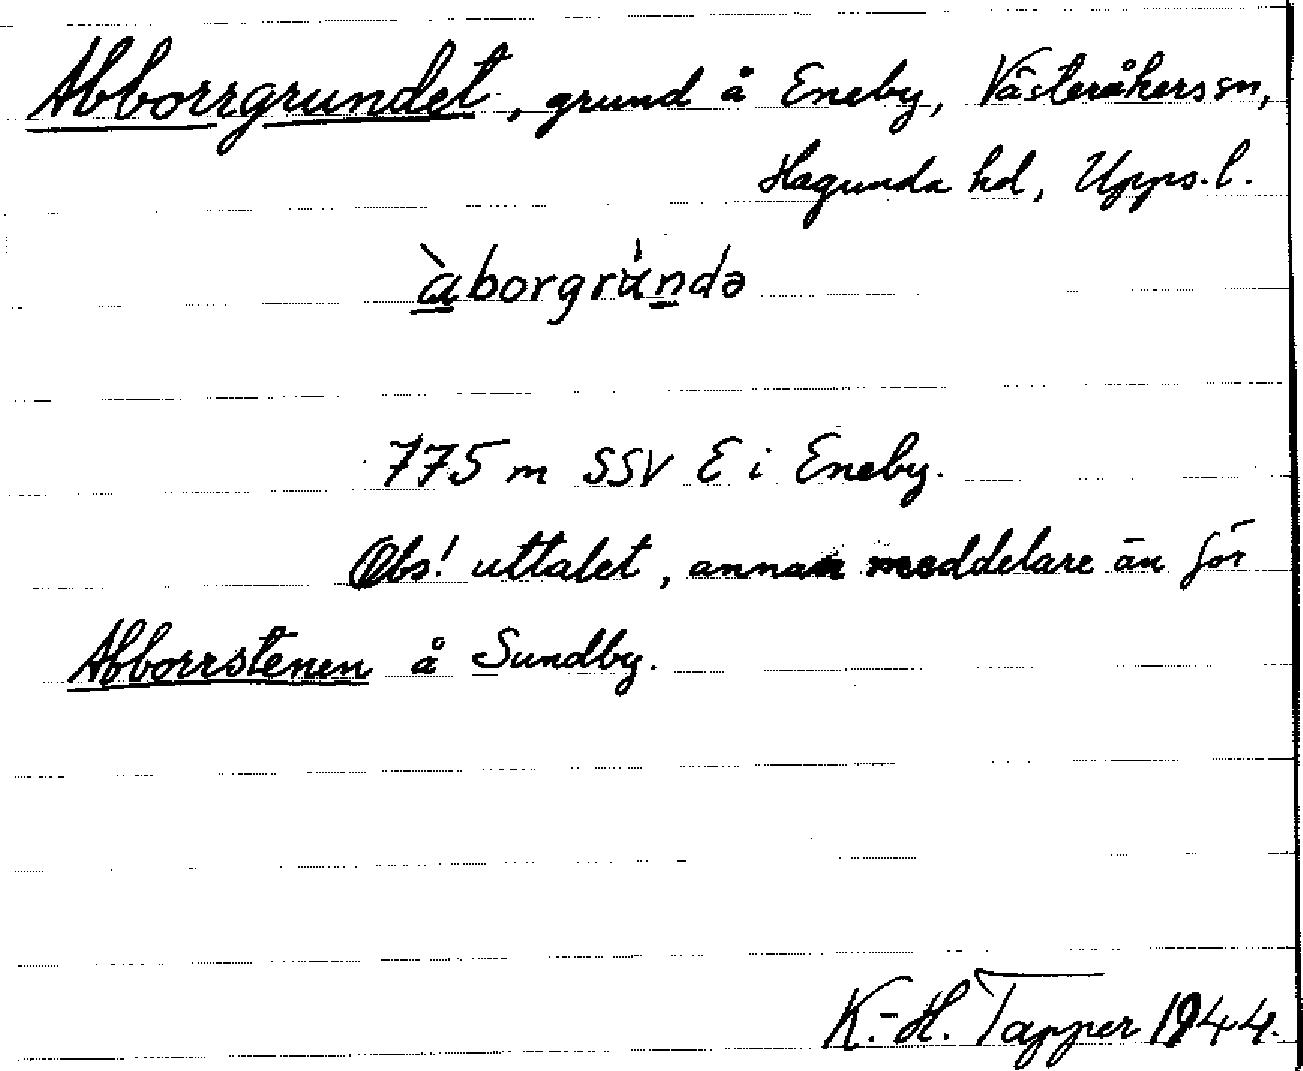 Abborrgrundet, grund å Eneby, Västeråkers sn,
Hagunda hd, Upps. l.
àborgrứndə
775 m SSV E i Eneby.
Obs! uttalet, annan meddelare än för
Abborrstenen å Sundby.
K.-H. Tapper 1944.